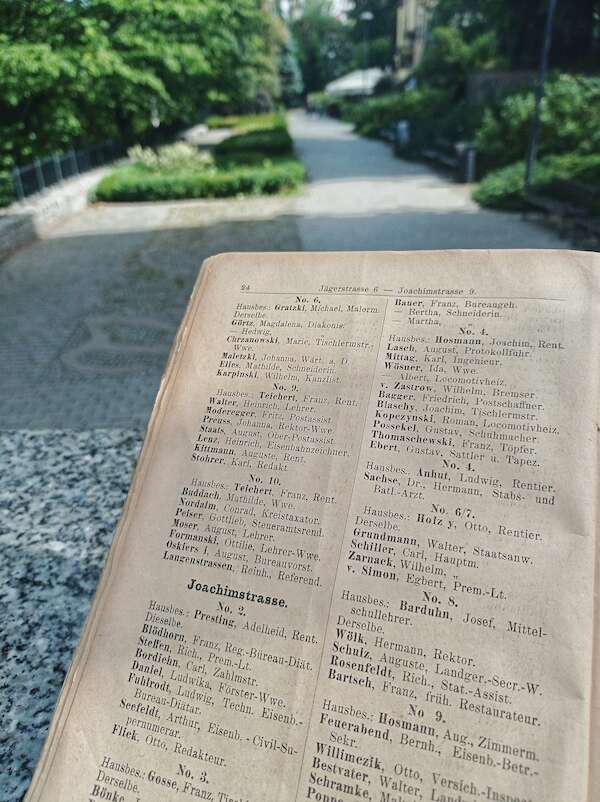 94 Jägerstrasse 6 — Joachimstrasse 9.
No. 6.
Hausbes.: Gratzki, Michael, Malerm.
Derselbe.
Görtz, Magdalena, Diakonis.
— Hedwig,
Chrzanowski, Marie, Tischlermstr.-
Wwe.
Maletzki, Johanna, Wärt. a. D.
Elles, Mathilde, Schneiderin.
Karpinski, Wilhelm, Kanzlist.
No. 9.
Hausbes.: Teichert, Franz, Rent.
Walter, Heinrich, Lehrer.
Moderegger, Fritz, Postassist.
Preuss, Johanna, Rektor-Wwe.
Staats, August, Ober-Postassist.
Lenz, Heinrich, Eisenbahnzeichner.
Kittmann, Auguste, Rent.
Stohrer, Karl, Redakt.
No. 10.
Hausbes.: Teichert, Franz, Rent.
Buddach, Mathilde, Wwe.
Nordalm, Conrad, Kreistaxator.
Pelser, Gottlieb, Steueramtsrend.
Moser, August, Lehrer.
Formanski, Ottilie, Lehrer-Wwe.
Oskiers I, August, Bureauvorst.
Langenstrassen, Reinh., Referend.
Joachimstrasse.
No. 2.
Hausbes.: Presting, Adelheid, Rent.
Dieselbe.
Blödhorn, Franz, Reg.-Büreau-Diät.
Steffen, Rich., Prem.-Lt.
Bordiehn, Carl, Zahlmstr.
Daniel, Ludwika, Förster-Wwe.
Fuhlrodt, Ludwig, Techn. Eisenb.-
Bureau-Diätar.
Seefeldt, Arthur, Eisenb.-Civil-Su-
pernumerar.
Fliek, Otto, Redakteur.
No. 3.
Hausbes.: Gosse, Franz,
Derselbe.
Bönke,
Bauer, Franz, Bureaugeh.
— Hertha, Schneiderin.
— Martha, „
No. 4.
Hausbes.: Hosmann, Joachim, Rent.
Lasch, August, Protokollführ.
Mittag, Karl, Ingenieur.
Wösner, Ida, Wwe.
— Albert, Locomotivheiz.
v. Zastrow, Wilhelm, Bremser
Bagger, Friedrich, Postschaffner.
Blaschy, Joachim, Tischlermstr.
Kopczynski, Roman, Locomotivheiz.
Possekel, Gustav, Schuhmacher.
Thomaschewski, Franz, Töpfer.
Ebert, Gustav, Sattler u. Tapez.
No. 4.
Hausbes.: Anhut, Ludwig, Rentier.
Sachse, Dr., Hermann, Stabs- und
Batl.-Arzt.
No. 6/7.
Hausbes.: Holz y, Otto, Rentier.
Derselbe.
Grundmann, Walter, Staatsanw.
Schiller, Carl, Hauptm.
Zarnack, Wilhelm, „
v. Simon, Egbert, Prem.-Lt.
No. 8.
Hausbes.: Barduhn, Josef, Mittel-
schullehrer.
Derselbe.
Wölk, Hermann, Rektor.
Schulz, Auguste, Landger.-Secr.-W.
Rosenfeldt, Rich., Stat.-Assist.
Bartsch, Franz, früh. Restaurateur.
No 9.
Hausbes.: Hosmann, Aug., Zimmerm.
Feuerabend, Bernh., Eisenb.-Betr.-
Sekr.
Willimczik, Otto, Versich.-Inspec
Bestvater, Walter,
Schramke,